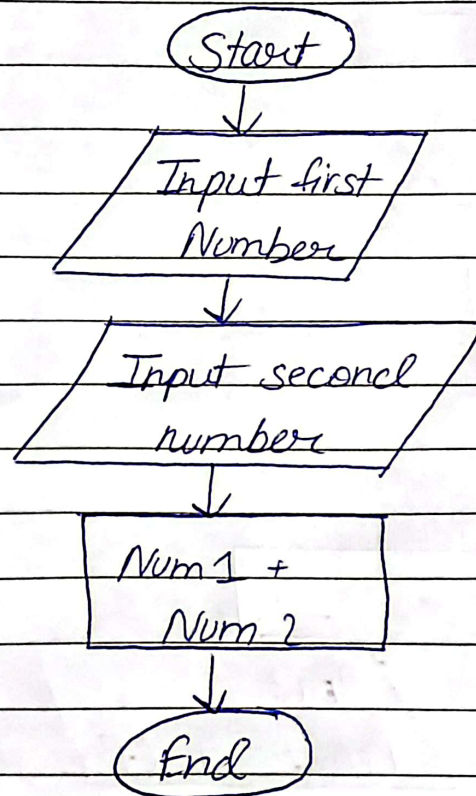 Start
Input first
Number
Input second
number
Num 1 +
Num 2
End